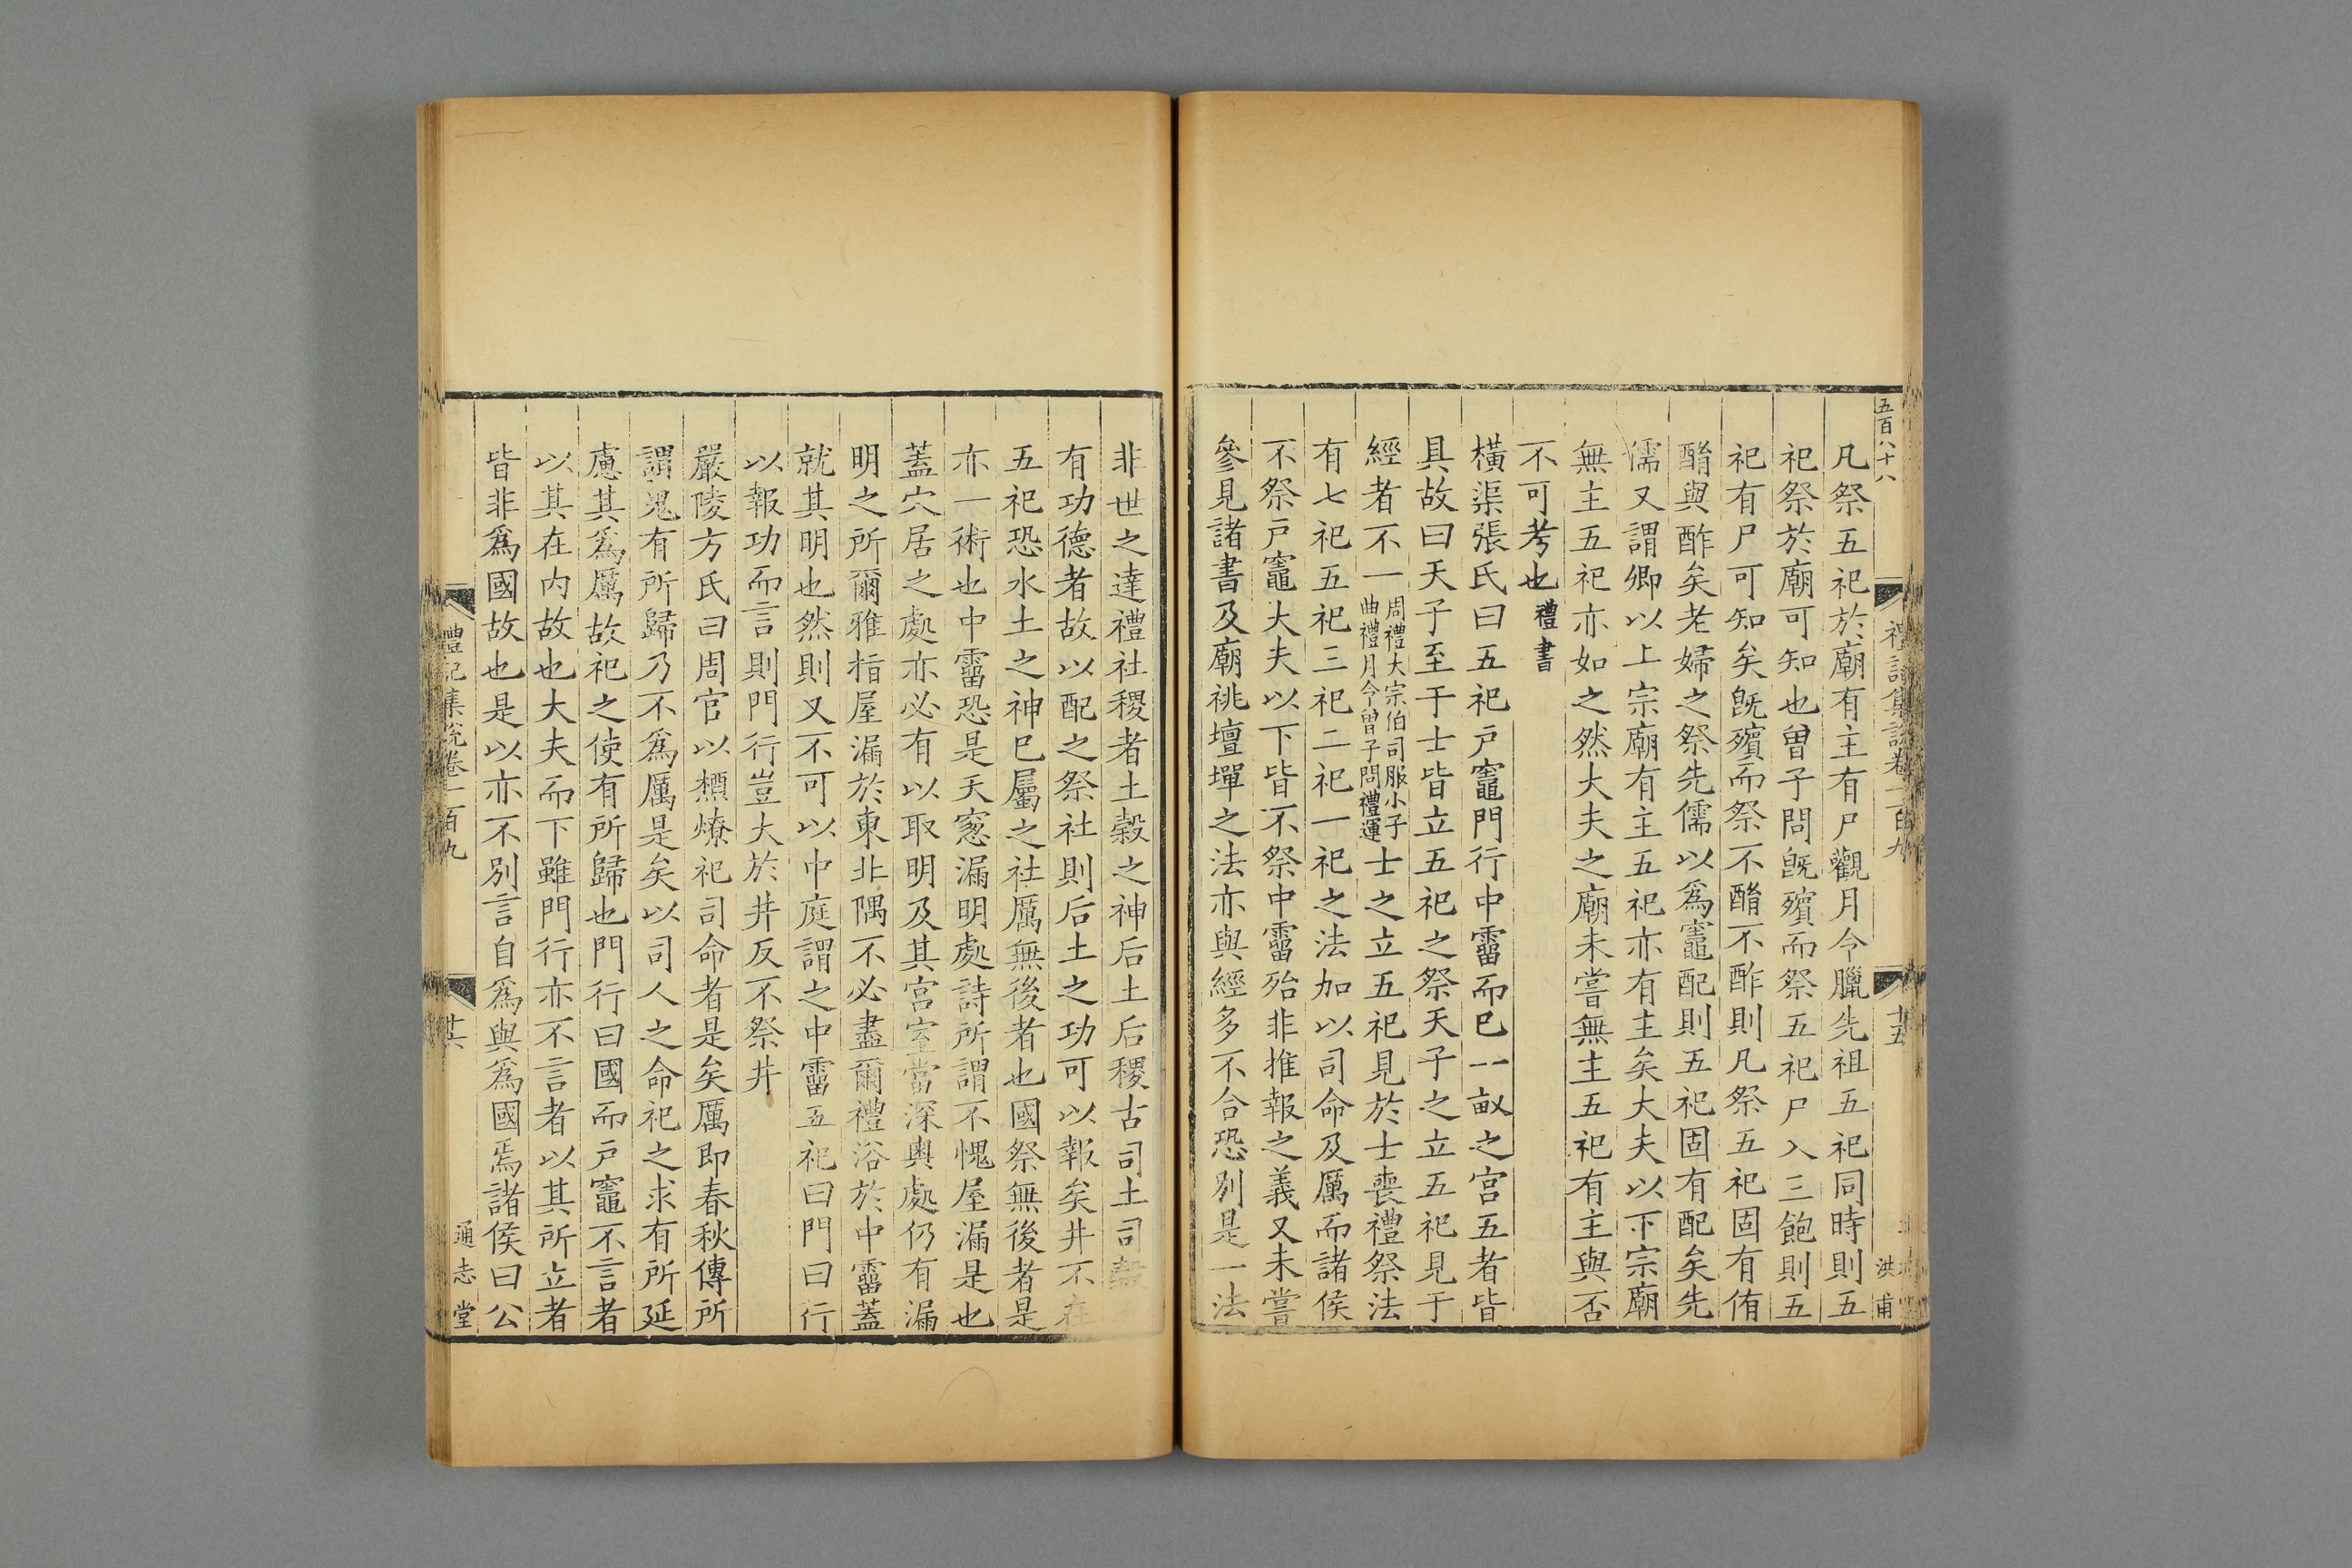 五百八十八
禮記集說卷一百九
十五
洪甫
凡祭五祀於廟有主有尸觀月令臘先祖五祀同時則五
祀祭於廟可知也曾子問旣殯而祭五祀尸入三飽則五
祀有尸可知矣旣殯而祭不酳不酢則凡祭五祀固有侑
酳與酢矣老婦之祭先儒以爲竈配則五祀固有配矣先
儒又謂卿以上宗廟有主五祀亦有主矣大夫以下宗廟
無主五祀亦如之然大夫之廟未嘗無主五祀有主與否
不可考也禮書
橫渠張氏曰五祀戸竈門行中霤而已一畝之宮五者皆
具故曰天子至于士皆立五祀之祭天子之立五祀見于
經者不一周禮大宗伯司服小子曲禮月令曾子問禮運士之立五祀見於士喪禮祭法
有七祀五祀三祀二祀一祀之法加以司命及厲而諸侯
不祭戸竈大夫以下皆不祭中霤殆非推報之義又未嘗
參見諸書及廟祧壇墠之法亦與經多不合恐別是一法
非世之達禮社稷者土穀之神后土后稷古司土司穀
有功德者故以配之祭社則后土之功可以報矣井不在
五祀恐水土之神已屬之社厲無後者也國祭無後者是
亦一術也中霤恐是天窓漏明處詩所謂不愧屋漏是也
蓋穴居之處亦必有以取明及其宮室當深奧處仍有漏
明之所爾雅指屋漏於東北隅不必盡爾禮浴於中霤蓋
就其明也然則又不可以中庭謂之中霤五祀曰門曰行
以報功而言則門行豈大於井反不祭井
嚴陵方氏曰周官以槱燎祀司命者是矣厲即春秋傳所
謂鬼有所歸乃不爲厲是矣以司人之命祀之求有所延
慮其爲厲故祀之使有所歸也門行曰國而戸竈不言者
以其在内故也大夫而下雖門行亦不言者以其所立者
皆非爲國故也是以亦不別言自爲與爲國焉諸侯曰公
禮記集說卷一百九
十六
通志堂